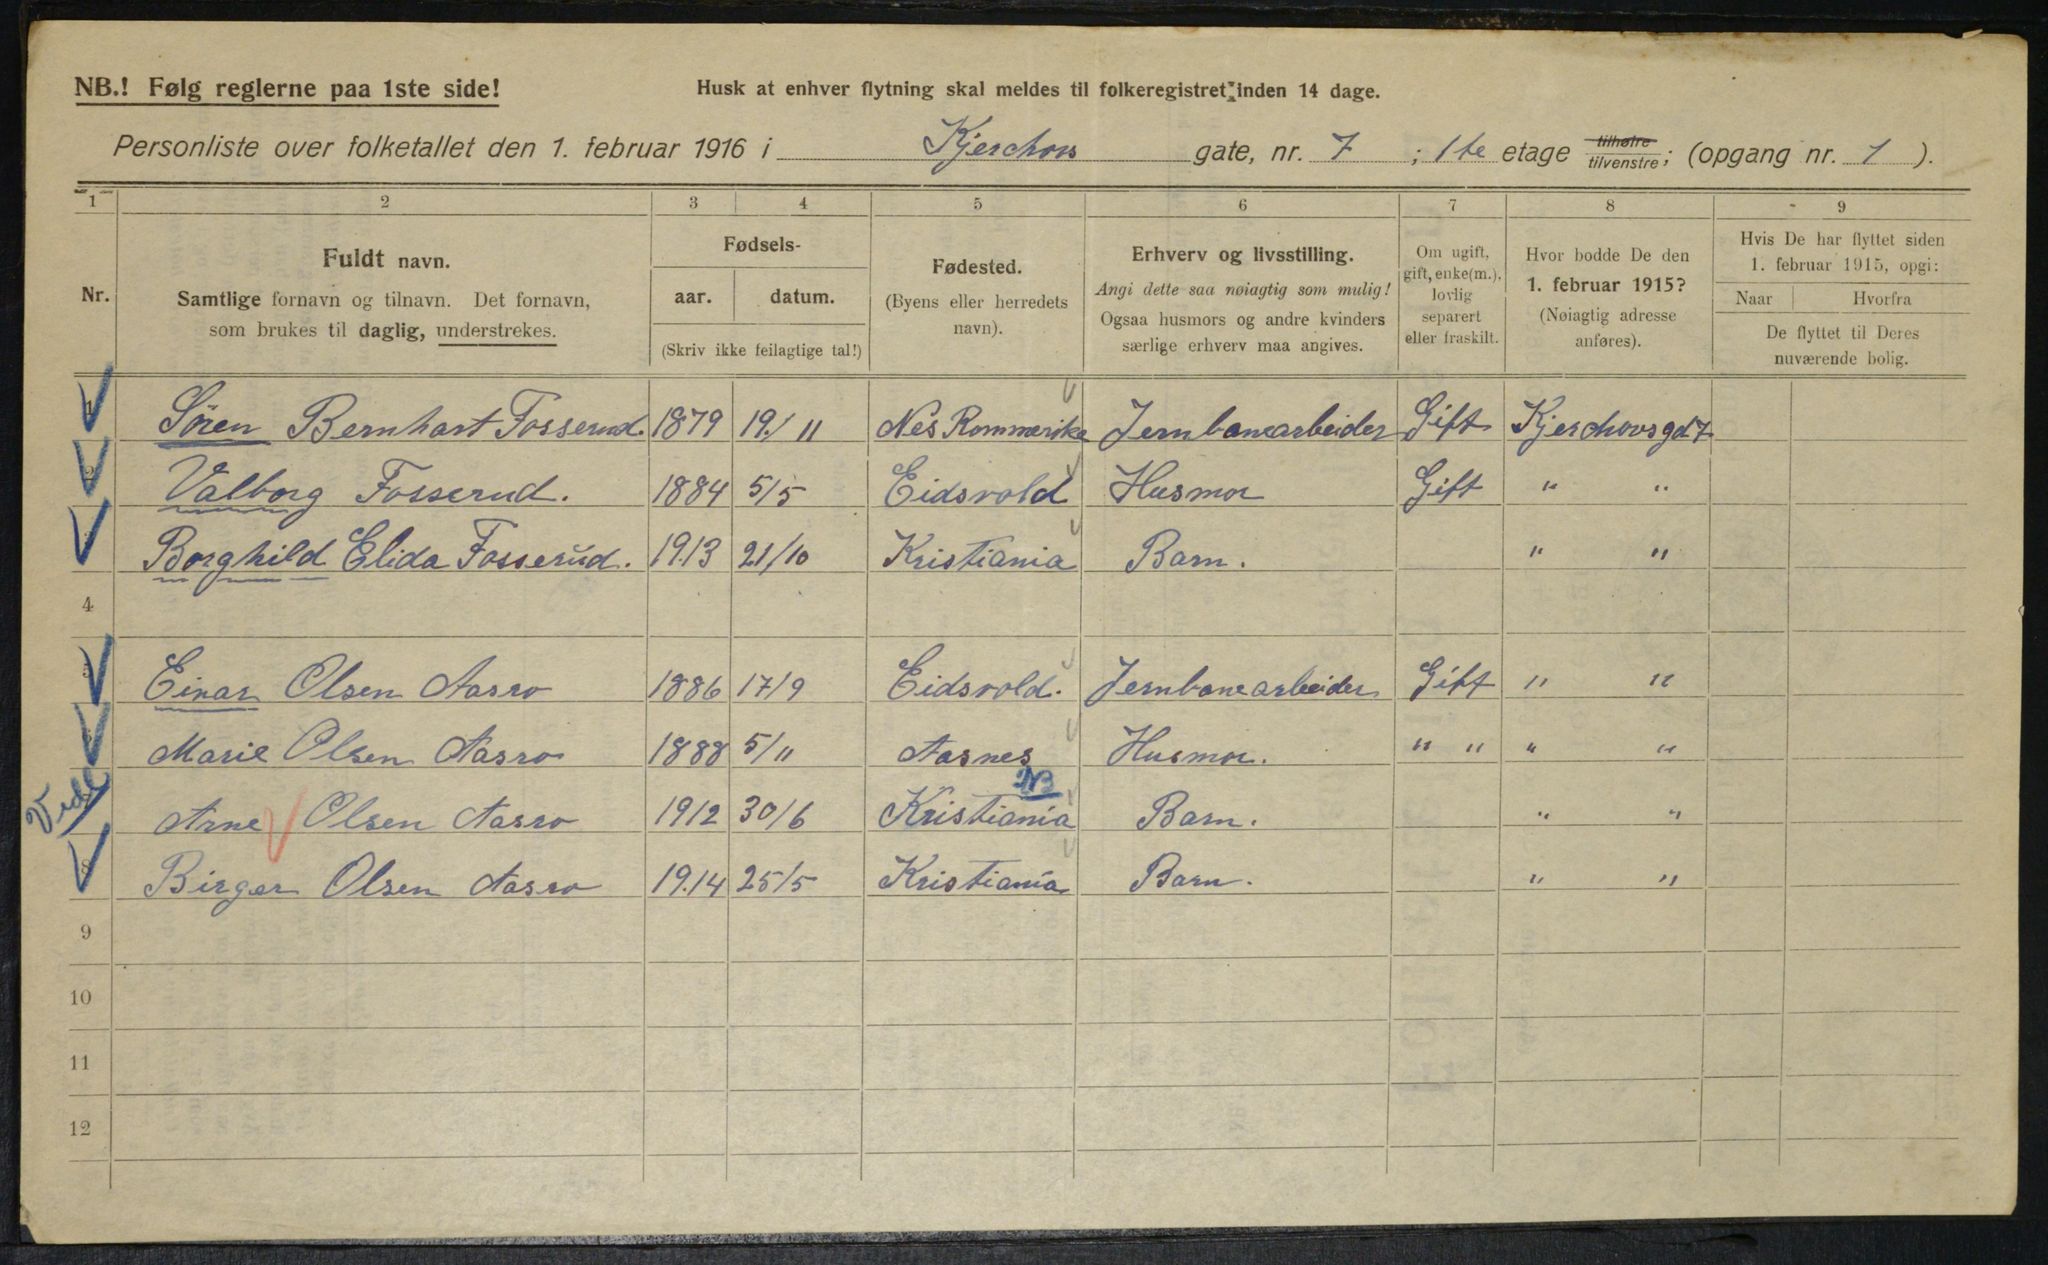 NB.! Følg reglerne paa 1ste side!
Husk at enhver flytning skal meldes til folkeregistret inden 14 dage.
Personliste over folketallet den 1. februar 1916 i Kjerchovs gate, nr. 7 ; 1te etage tilhøire tilvenstre; (opgang nr. 1 ).
1 2 3 4 5 6 7 8 9
Nr.
Fuldt navn.
Samtlige fornavn og tilnavn. Det fornavn,
som brukes til daglig, understrekes.
Fødsels-
aar. datum.
(Skriv ikke feilagtige tal!)
Fødested.
(Byens eller herredets
navn).
Erhverv og livsstilling.
Angi dette saa nøiagtig som mulig!
Ogsaa husmors og andre kvinders
særlige erhverv maa angives.
Om ugift,
gift, enke(m.),
lovlig
separert
eller fraskilt.
Hvor bodde De den
1. februar 1915?
(Nøiagtig adresse
anføres).
Hvis De har flyttet siden
1. februar 1915, opgi:
Naar Hvorfra
De flyttet til Deres
nuværende bolig.
1 Søren Bernhart Fosserud. 1879 19/11 Nes Rommerike Jernbanearbeider Gift Kjerchovsgd 7
2 Valborg Fosserud. 1884 5/5 Eidsvold Husmor Gift " "
3 Borghild Elida Fosserud. 1913 21/10 Kristiania Barn. " "
4
5 Einar Olsen Aasro 1886 17/9 Eidsvold. Jernbanearbeider Gift " "
6 Marie Olsen Aasro 1888 5/11 Aasnes Husmor. " " " "
NB
Arne Olsen Aasro 1912 30/6 Kristiania Barn. " "
8 Birger Olsen Aasro 1914 25/5 Kristiania Barn. " "
9
10
11
12